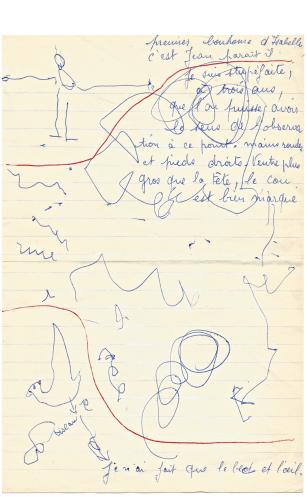 premier bonhome d'Isabelle
c'est Jean paraît il
je suis stupéfaite,
à trois ans,
que l'on puisse avoir
le sens de l'observa
tion à ce point. mains rondes
et pieds droits. Ventre plus
gros que la tête, le cou
est bien marqué
oiseau
je n'ai fait que le bec et l'œil.